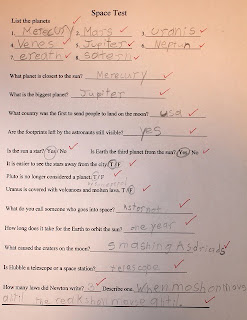 Space Test
List the planets
1. Metecury 2. Mars 3. Uranis
4. Venes 5. Jupiter 6. Neptun
7. ereath 8. Satern
What planet is closest to the sun? Merecury
What is the biggest planet? Jupiter
What country was the first to send people to land on the moon? usa
Are the footprints left by the astronauts still visible? yes
Is the sun a star? Yes/ No Is Earth the third planet from the sun? Yes/ No
It is easier to see the stars away from the city. T/F
Pluto is no longer considered a planet. T/F
Uranus is covered with volcanoes and molten lava. T/F
What do you call someone who goes into space?
How long does it take for the Earth to orbit the sun? one year
What caused the craters on the moon? Smashing
Is Hubble a telescope or a space station? telescope
How many laws did Newton write? 3 Describe one. When